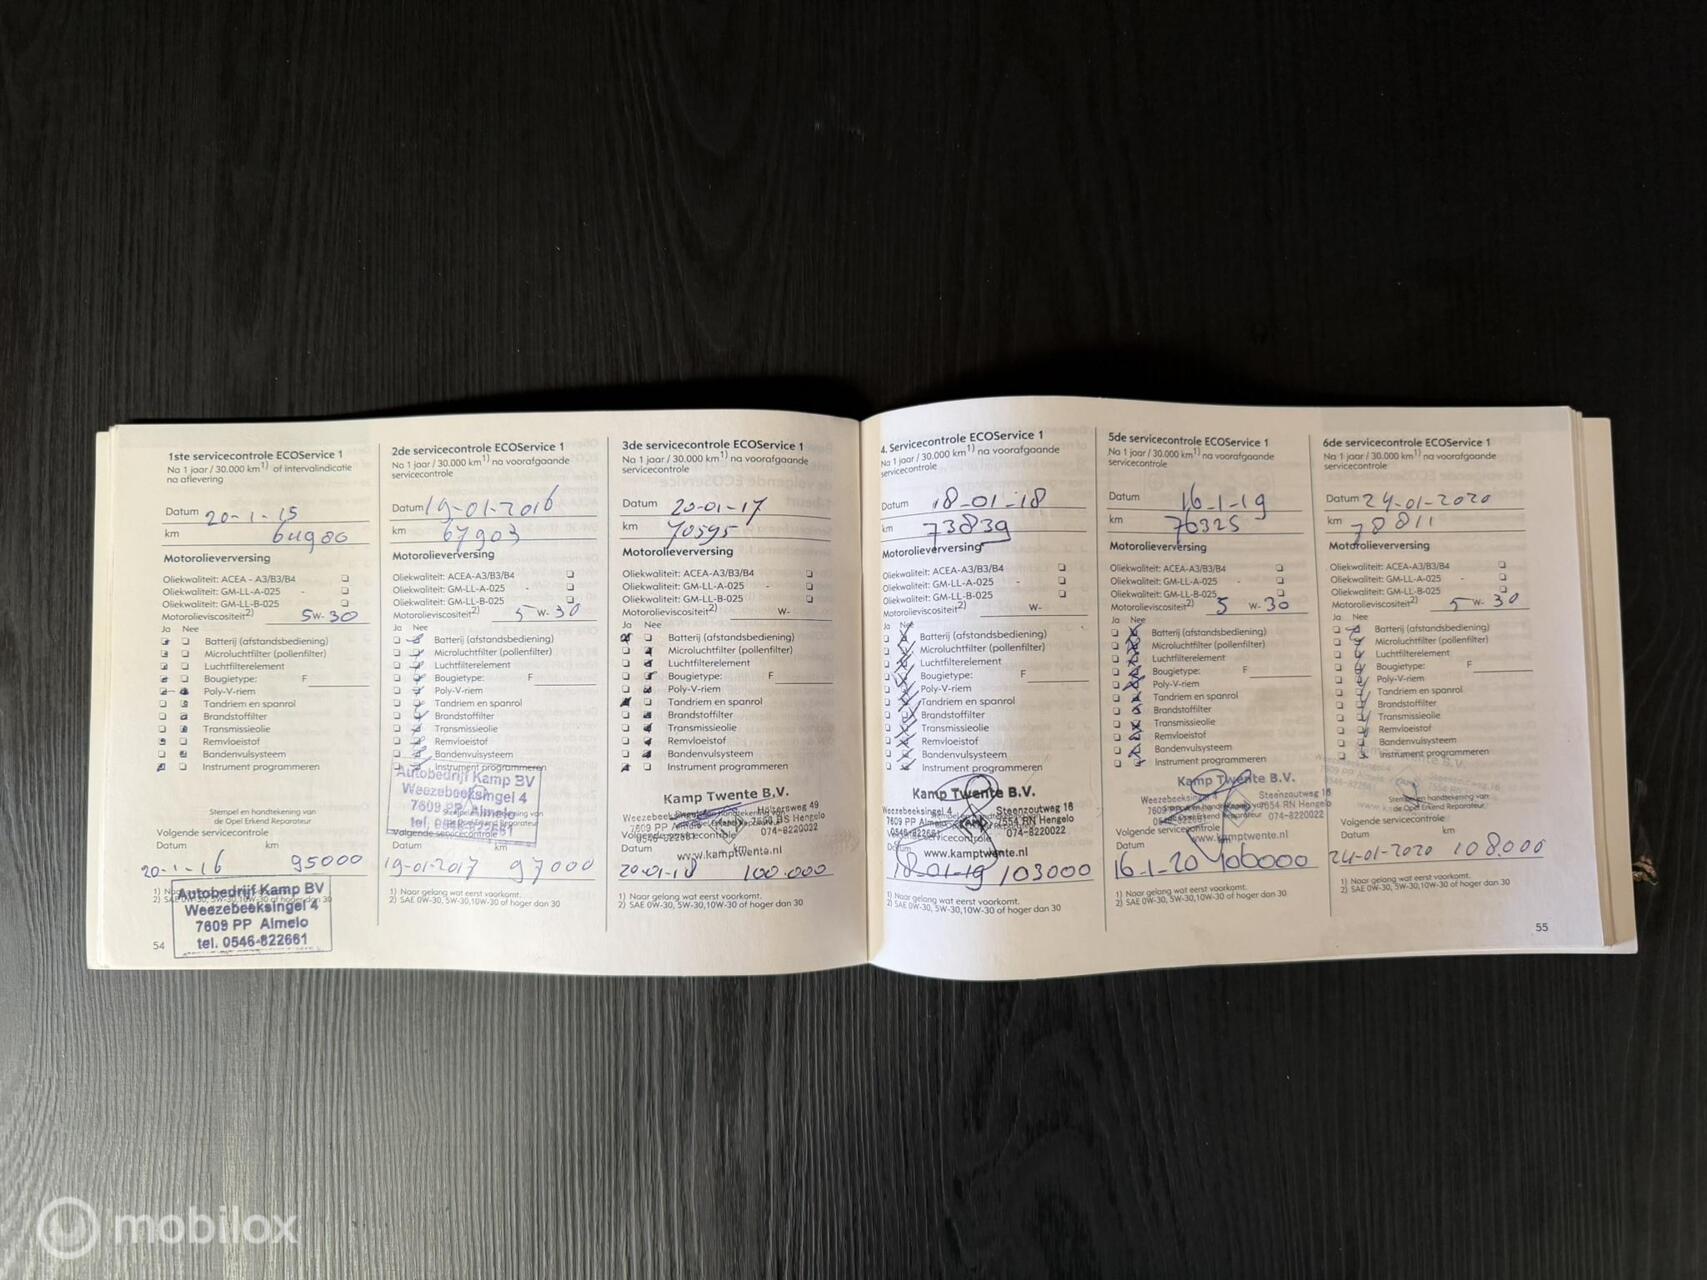 1ste servicecontrole ECOService 1
Na 1 jaar / 30.000 km1) of intervalindicatie
na aflevering
Datum 20-1-15
km 64980
Motorolieverversing
Oliekwaliteit: ACEA - A3/B3/B4
Oliekwaliteit: GM-LL-A-025
Oliekwaliteit: GM-LL-B-025
Motorolieviscositeit2) 5W-30
Ja Nee
Batterij (afstandsbediening)
Microluchtfilter (pollenfilter)
Luchtfilterelement
Bougietype: F
Poly-V-riem
Tandriem en spanrol
Brandstoffilter
Transmissieolie
Remvloeistof
Bandenvulsysteem
Instrument programmeren
Stempel en handtekening van
de Opel Erkend Reparateur
Volgende servicecontrole
Datum km
20-1-16 95000
2) SAE 0W-30, 5W-30,10W-30 of hoger dan 30
Autobedrijf Kamp BV
Weezebeeksingel 4
7609 PP Almelo
tel. 0546-822661
54
2de servicecontrole ECOService 1
Na 1 jaar / 30.000 km1) na voorafgaande
servicecontrole
Datum 19-01-2016
km 67903
Motorolieverversing
Oliekwaliteit: ACEA-A3/B3/B4
Oliekwaliteit: GM-LL-A-025
Oliekwaliteit: GM-LL-B-025
Motorolieviscositeit2) 5 W-30
Ja Nee
Batterij (afstandsbediening)
Microluchtfilter (pollenfilter)
Luchtfilterelement
Bougietype: F
Poly-V-riem
Tandriem en spanrol
Brandstoffilter
Transmissieolie
Remvloeistof
Bandenvulsysteem
Instrument programmeren
Autobedrijf Kamp BV
Weezebeeksingel 4
7609 PP Almelo
tel. 0546-822661
Volgende servicecontrole
Datum km
19-01-2017 97000
1) Naar gelang wat eerst voorkomt.
2) SAE 0W-30, 5W-30,10W-30 of hoger dan 30
3de servicecontrole ECOService 1
Na 1 jaar / 30.000 km1) na voorafgaande
servicecontrole
Datum 20-01-17
km 70595
Motorolieverversing
Oliekwaliteit: ACEA-A3/B3/B4
Oliekwaliteit: GM-LL-A-025
Oliekwaliteit: GM-LL-B-025
Motorolieviscositeit2) W-
Ja Nee
Batterij (afstandsbediening)
Microluchtfilter (pollenfilter)
Luchtfilterelement
Bougietype: F
Poly-V-riem
Tandriem en spanrol
Brandstoffilter
Transmissieolie
Remvloeistof
Bandenvulsysteem
Instrument programmeren
Kamp Twente B.V.
7609 PP Almelo 7550 BS Hengelo
0546-822661 074-8220022
Datum
www.kamptwente.nl
20-01-18 100.000
1) Naar gelang wat eerst voorkomt.
2) SAE 0W-30, 5W-30,10W-30 of hoger dan 30
4. Servicecontrole ECOService 1
Na 1 jaar / 30.000 km1) na voorafgaande
servicecontrole
Datum 18-01-18
km 73839
Motorolieverversing
Oliekwaliteit: ACEA-A3/B3/B4
Oliekwaliteit: GM-LL-A-025
Oliekwaliteit: GM-LL-B-025
Motorolieviscositeit2) W-
Ja Nee
Batterij (afstandsbediening)
Microluchtfilter (pollenfilter)
Luchtfilterelement
Bougietype: F
Poly-V-riem
Tandriem en spanrol
Brandstoffilter
Transmissieolie
Remvloeistof
Bandenvulsysteem
Instrument programmeren
Kamp Twente B.V.
Weezebeeksingel 4 Steenzoutweg 16
7609 PP Almelo 7554 RN Hengelo
0546-822661 074-8220022
www.kamptwente.nl
18-01-19 103000
1) Naar gelang wat eerst voorkomt.
2) SAE 0W-30, 5W-30,10W-30 of hoger dan 30
5de servicecontrole ECOService 1
Na 1 jaar / 30.000 km1) na voorafgaande
servicecontrole
Datum 16-1-19
km 76325
Motorolieverversing
Oliekwaliteit: ACEA-A3/B3/B4
Oliekwaliteit: GM-LL-A-025
Oliekwaliteit: GM-LL-B-025
Motorolieviscositeit2) 5 W-30
Ja Nee
Batterij (afstandsbediening)
Microluchtfilter (pollenfilter)
Luchtfilterelement
Bougietype: F
Poly-V-riem
Tandriem en spanrol
Brandstoffilter
Transmissieolie
Remvloeistof
Bandenvulsysteem
Instrument programmeren
Kamp Twente B.V.
Weezebeeksingel 4 Steenzoutweg 16
7609 PP 7554 RN Hengelo
074-8220022
Volgende servicecontrole
www.kamptwente.nl
Datum
16-1-20 106000
1) Naar gelang wat eerst voorkomt.
2) SAE 0W-30, 5W-30,10W-30 of hoger dan 30
6de servicecontrole ECOService 1
Na 1 jaar / 30.000 km1) na voorafgaande
servicecontrole
Datum 24-01-2020
km 78811
Motorolieverversing
Oliekwaliteit: ACEA-A3/B3/B4
Oliekwaliteit: GM-LL-A-025
Oliekwaliteit: GM-LL-B-025
Motorolieviscositeit2) 5 W-30
Ja Nee
Batterij (afstandsbediening)
Microluchtfilter (pollenfilter)
Luchtfilterelement
Bougietype: F
Poly-V-riem
Tandriem en spanrol
Brandstoffilter
Transmissieolie
Remvloeistof
Bandenvulsysteem
Instrument programmeren
Stempel en handtekening van
de Opel Erkend Reparateur
Volgende servicecontrole
Datum km
24-01-2020 108.000
1) Naar gelang wat eerst voorkomt.
2) SAE 0W-30, 5W-30,10W-30 of hoger dan 30
55
mobilox